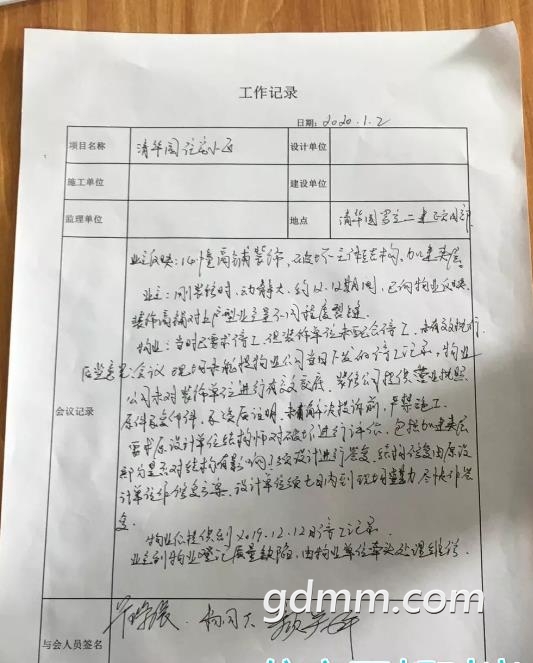 工作记录
日期: 2020.1.2
项目名称 清华园住宅小区 设计单位
施工单位 建设单位
监理单位 地点 清华园 二建项目部
业主反映: 14幢商铺装饰, 破坏主体结构, 加建夹层
业主: 刚装修时, 动静大, 约12.12期间, 已向物业反映
装饰商铺对上户型业主墙不同程度裂缝
物业: 当时已要求停工, 但装饰单位未配合停工
会议 现场未能提供物业公司当日下发的停工记录, 物业
会议记录
公司未对装饰单位进行有效交底. 装修公司提供营业执照
原件 未解决投诉前, 严禁施工.
要求原设计单位结构师对破坏进行评估, 包括加建夹层
部分是否对结构有影响 设计进行答复, 结构修复由原设
计单位 修复方案, 设计单位 七日内到现场查勘 尽快作答
复
物业仅提供到2019.12.12的停工记录
业主到物业登记质量缺陷, 由物业单位牵头处理维修
gdmm.com
与会人员签名